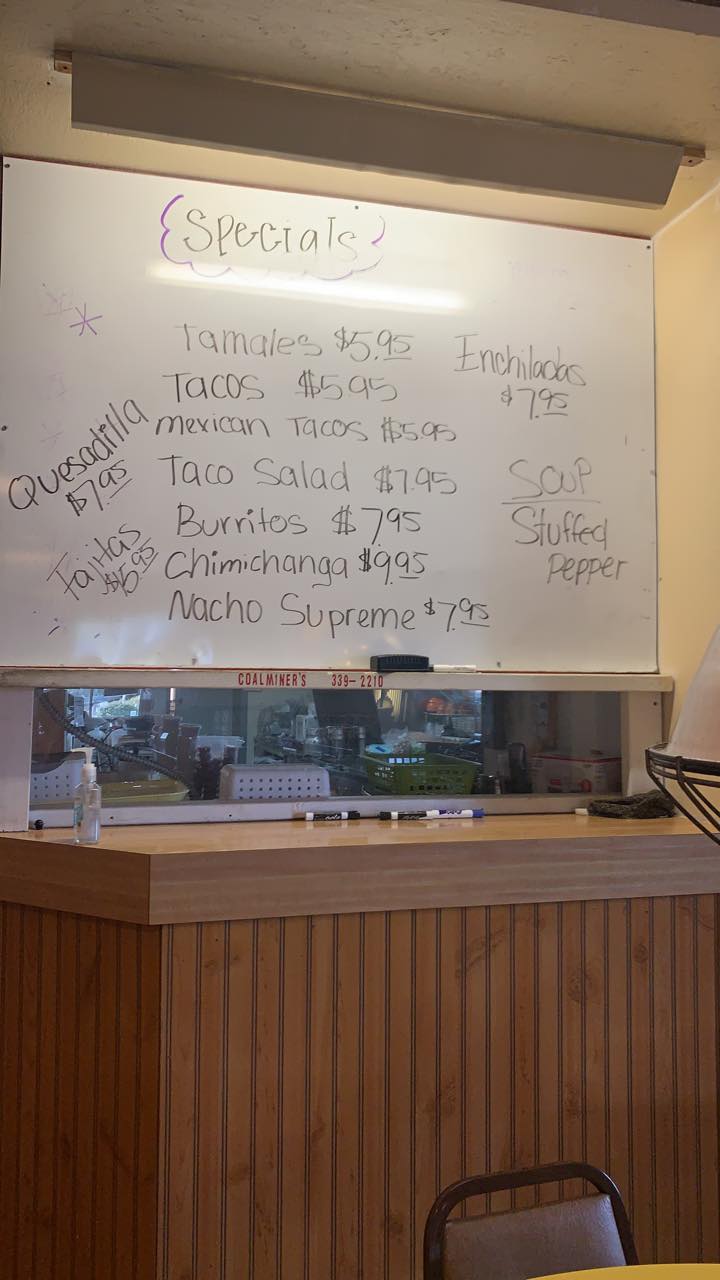 Specials
*
Tamales $5.95
Tacos $5.95
mexican Tacos $5.95
Taco Salad $7.95
Burritos $7.95
Chimichanga $9.95
Nacho Supreme $7.95
Quesadilla
$7.95
Fajitas
$15.95
Enchiladas
$7.95
Soup
Stuffed
Pepper
COALMINER'S 339-2210